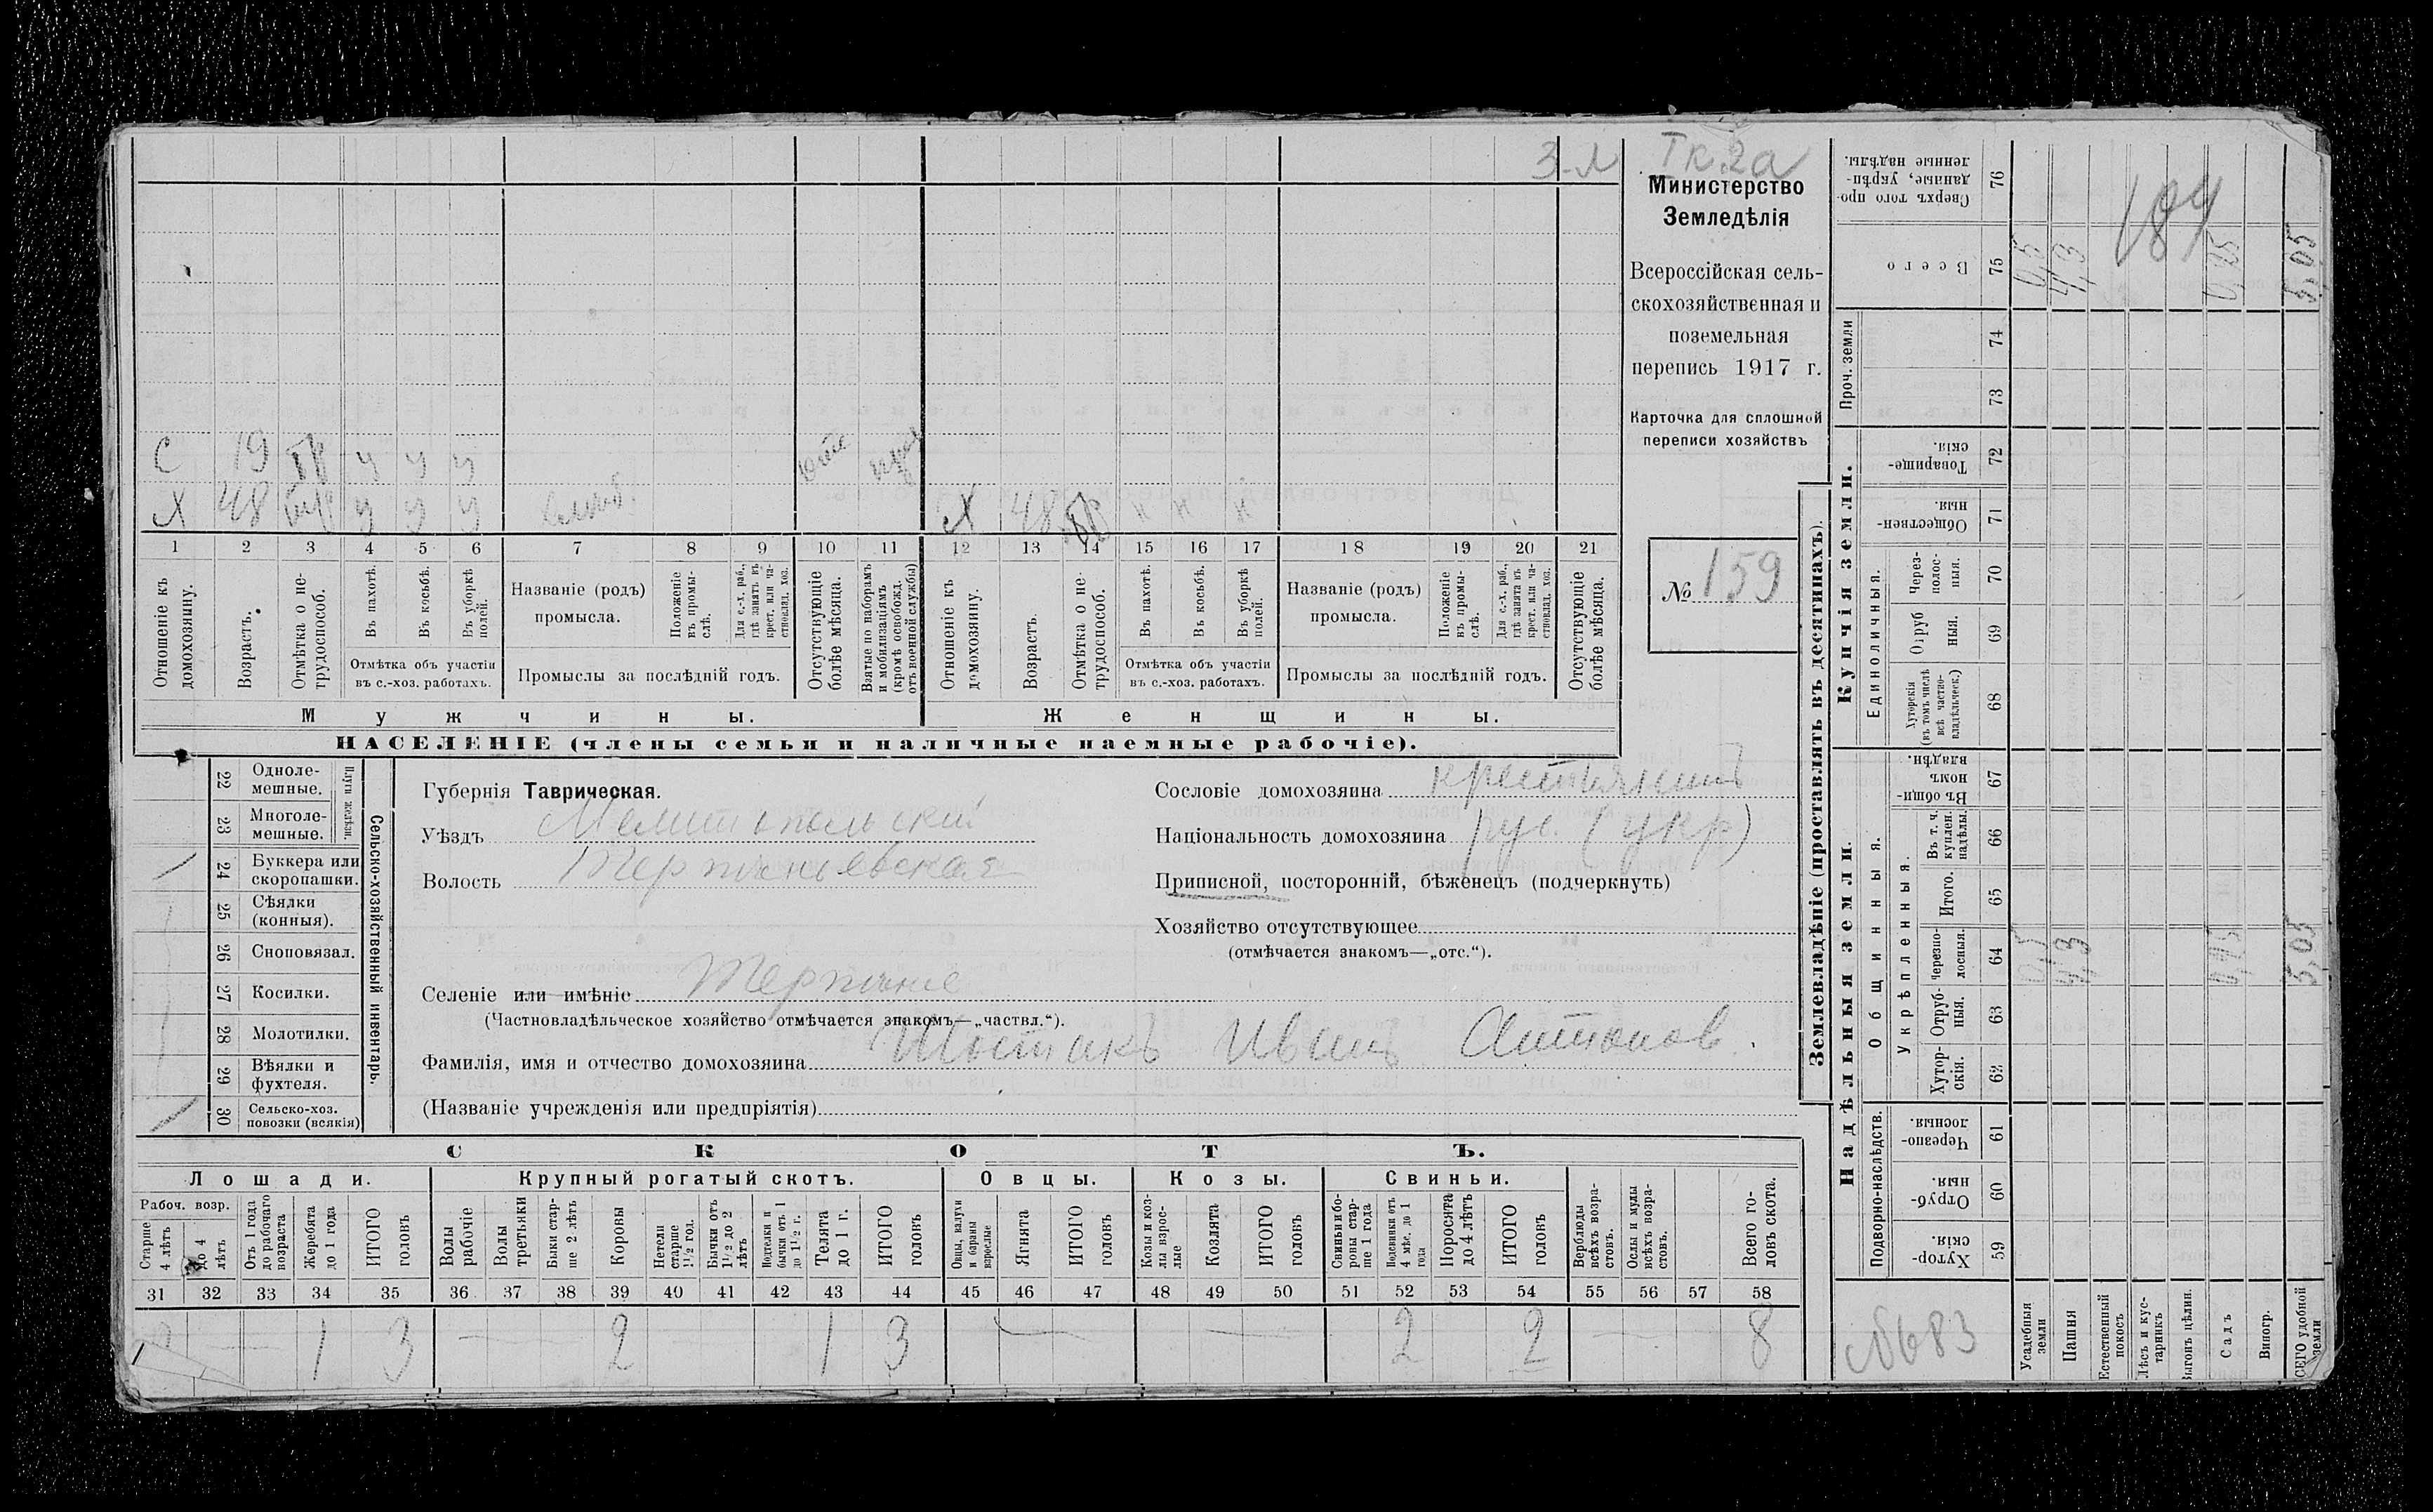 3-л
Iк. 2а
Министерство
Земледѣлія
Всероссійская сель-
скохозяйственная и
поземельная
перепись 1917 г.
Карточка для сплошной
переписи хозяйствъ
№ 159
С 19 у у у
Х 48 у у у
Х 48 н н н
1 2 3 4 5 6 7 8 9 10 11 12 13 14 15 16 17 18 19 20 21
Отношеніе къ домохозяину.
Возрастъ.
Отмѣтка о не-трудоспособ.
Въ пахотѣ.
Въ косьбѣ.
Въ уборкѣ полей.
Отмѣтка объ участіи
въ с.-хоз. работахъ.
Названіе (родъ)
промысла.
Положеніе въ промы-слѣ.
Для с.-х. раб., гдѣ занятъ въ крест. или ча-стновлад. хоз.
Промыслы за послѣдній годъ.
Отсутствующіе болѣе мѣсяца.
Взятые по наборамъ и мобилизаціямъ (кромѣ освобожд. отъ военной службы)
Отношеніе къ домохозяину.
Возрастъ.
Отмѣтка о не-трудоспособ.
Въ пахотѣ.
Въ косьбѣ.
Въ уборкѣ полей.
Отмѣтка объ участіи
въ с.-хоз. работахъ.
Названіе (родъ)
промысла.
Положеніе въ промы-слѣ.
Для с.-х. раб., гдѣ занята въ крест. или ча-стновлад. хоз.
Промыслы за послѣдній годъ.
Отсутствующіе болѣе мѣсяца.
Мужчины.
Женщины.
НАСЕЛЕНІЕ (члены семьи и наличные наемные рабочіе).
22 Одноле-мешные.
23 Многоле-мешные.
Плуги желѣзн.
24 Буккера или скоропашки.
25 Сѣялки (конныя).
26 Сноповязал.
27 Косилки.
28 Молотилки.
29 Вѣялки и фухтеля.
30 Сельско-хоз. повозки (всякія)
Сельско-хозяйственный инвентарь.
Губернія Таврическая.
Уѣздъ Мелитопольскій
Волость Терпеньевская
Селеніе или имѣніе Терпеніе
(Частновладѣльческое хозяйство отмѣчается знакомъ—„частвл.“).
Фамилія, имя и отчество домохозяина Шостакъ Иванъ Антонов.
(Названіе учрежденія или предпріятія)
Сословіе домохозяина крестьянинъ
Національность домохозяина рус. (укр)
Приписной, посторонній, бѣженецъ (подчеркнуть)
Хозяйство отсутствующее
(отмѣчается знакомъ—„отс.“).
СКОТЪ.
Лошади. Крупный рогатый скотъ. Овцы. Козы. Свиньи.
Рабоч. возр.
Старше 4 лѣтъ
до 4 лѣтъ
Отъ 1 года до рабочаго возраста
Жеребята до 1 года
ИТОГО головъ
Волы рабочіе
Волы третьяки
Быки стар-ше 2 лѣтъ
Коровы
Нетели старше 1½ год.
Бычки отъ 1½ до 2 лѣтъ
Подтелки и бычки отъ 1 до 1½ г.
Телята до 1 г.
ИТОГО головъ
Овцы, валухи и бараны взрослые
Ягнята
ИТОГО головъ
Козы и коз-лы взрос-лые
Козлята
ИТОГО головъ
Свиньи и бо-ровы стар-ше 1 года
Подсвинки отъ 4 мѣс. до 1 года
Поросята до 4 лѣтъ
ИТОГО головъ
Верблюды всѣхъ возра-стовъ.
Ослы и мулы всѣхъ возра-стовъ.
Всего го-ловъ скота.
31 32 33 34 35 36 37 38 39 40 41 42 43 44 45 46 47 48 49 50 51 52 53 54 55 56 57 58
1 3 2 1 3 2 2 8
Землевладѣніе (проставлять въ десятинахъ).
Сверхъ того про-данные, укрѣп-ленные надѣлы. 76
Всего 75 0,5 4,3 0,25 5,05
184
Проч. земли 74 73
Купчія земли.
Товарище-скія. 72
Обществен-ныя. 71
Единоличныя.
Через-полос-ныя. 70
Отруб ныя. 69
Хуторскія (въ томъ числѣ всѣ частно-владѣльческ.) 68
Надѣльныя земли.
Общинныя.
Въ общи-номъ владѣн. 67
Укрѣпленныя.
Въ т. ч. куплен. надѣлы. 66
Итого. 65
Черезпо-лосныя. 64 0,5 4,3 0,25 5,05
Отруб-ныя. 63
Хутор-скія. 62
Подворно-наслѣдств.
Черезпо-лосныя. 61
Отруб-ныя 60
Хутор-скія. 59
683
Усадебныя земли
Пашня
Естественный покосъ
Лѣсъ и кус-тарникъ
Выгонъ цѣлин.
Садъ
Виногр.
ВСЕГО удобной земли